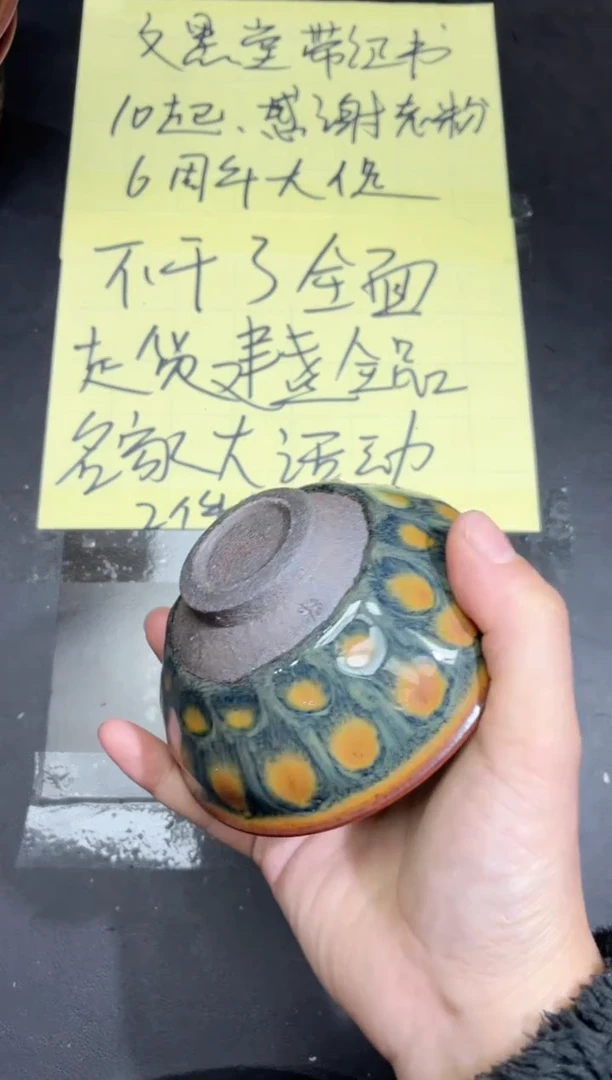 文墨堂带证书
10起、感谢老粉
6周年大促
不干了全面
走货建盏全品
名家大活动
2件